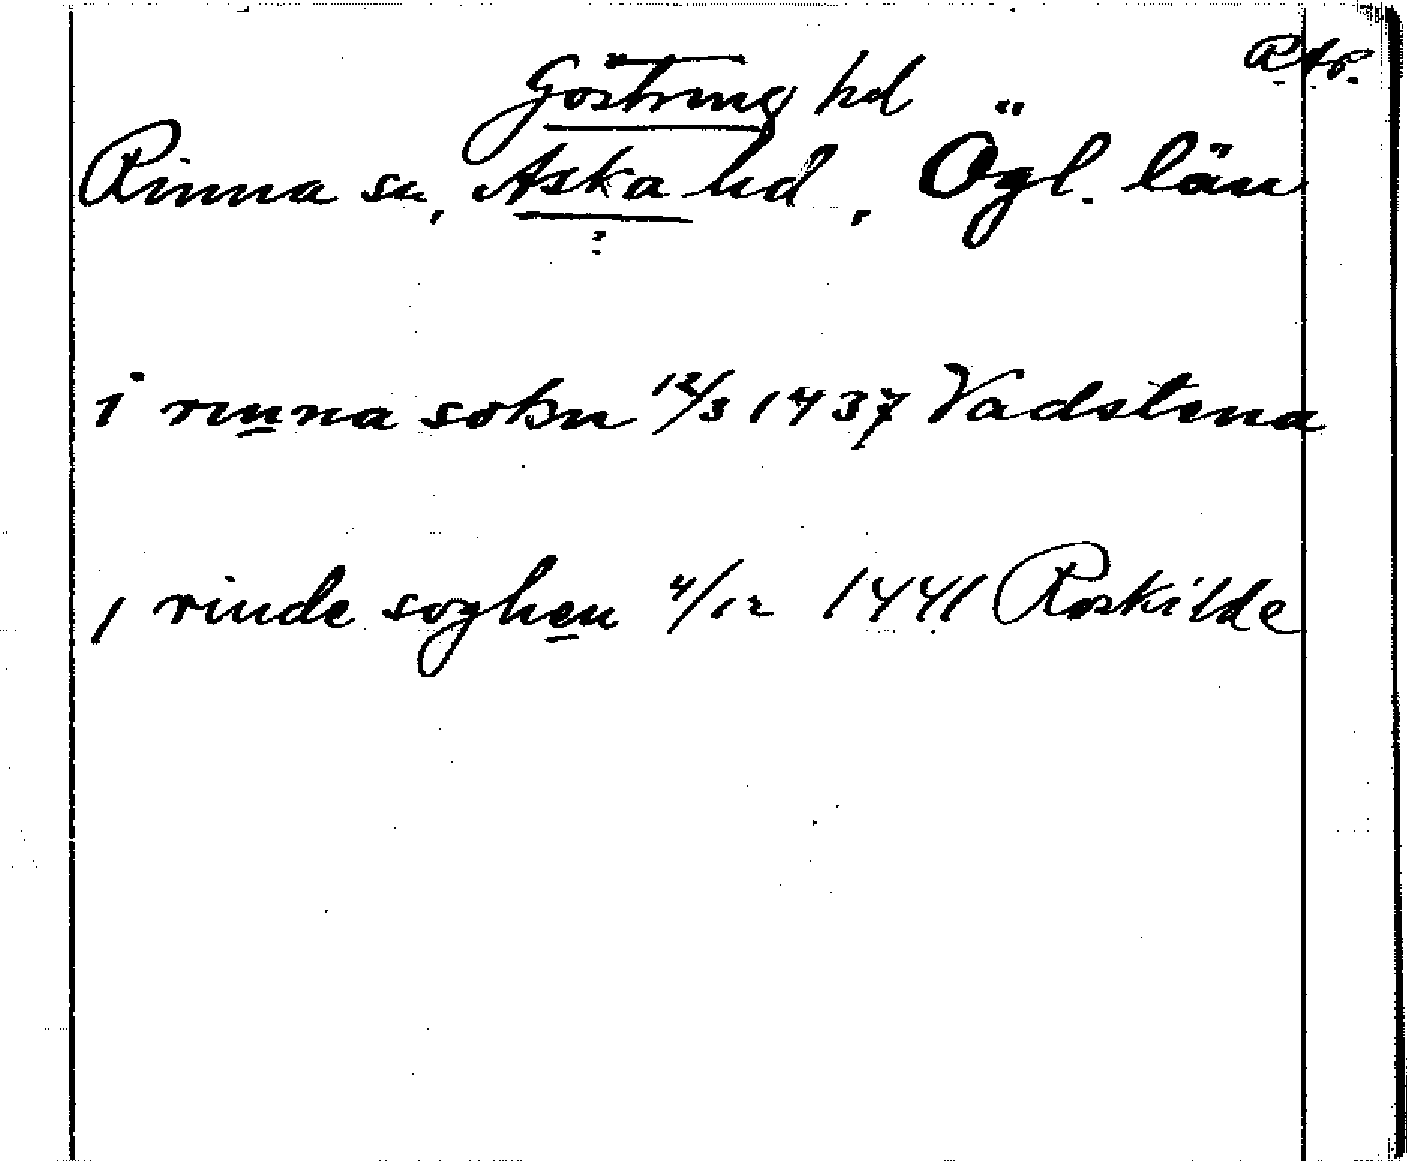 R.Ap.
Göstring hd
Rinna sn, Aska hd, Ögl. län
?
i rinna sokn 12/3 1437 Vadstena
i rinde soghen 4/12 1441 Roskilde